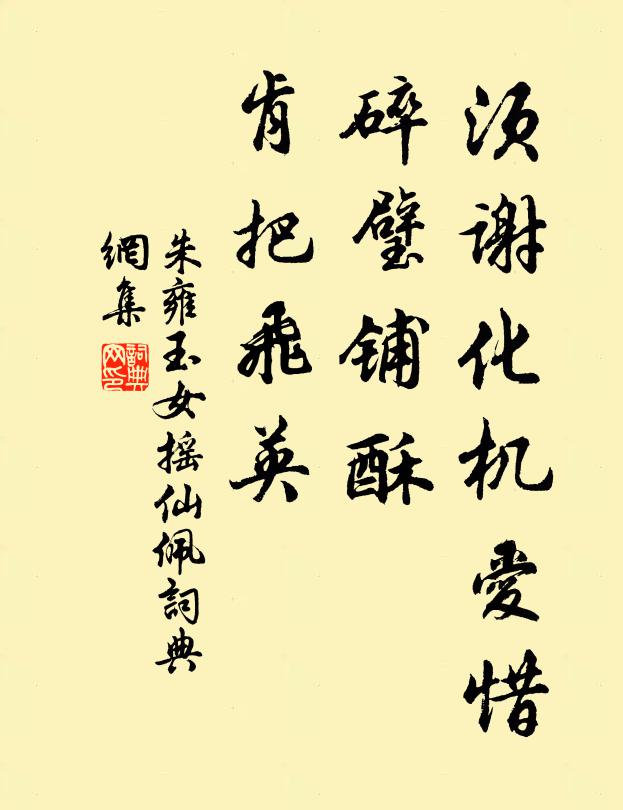 须谢化机爱惜
碎璧铺酥
肯把飛英
朱雍玉女摇仙佩詞典
網集
詞典
网印